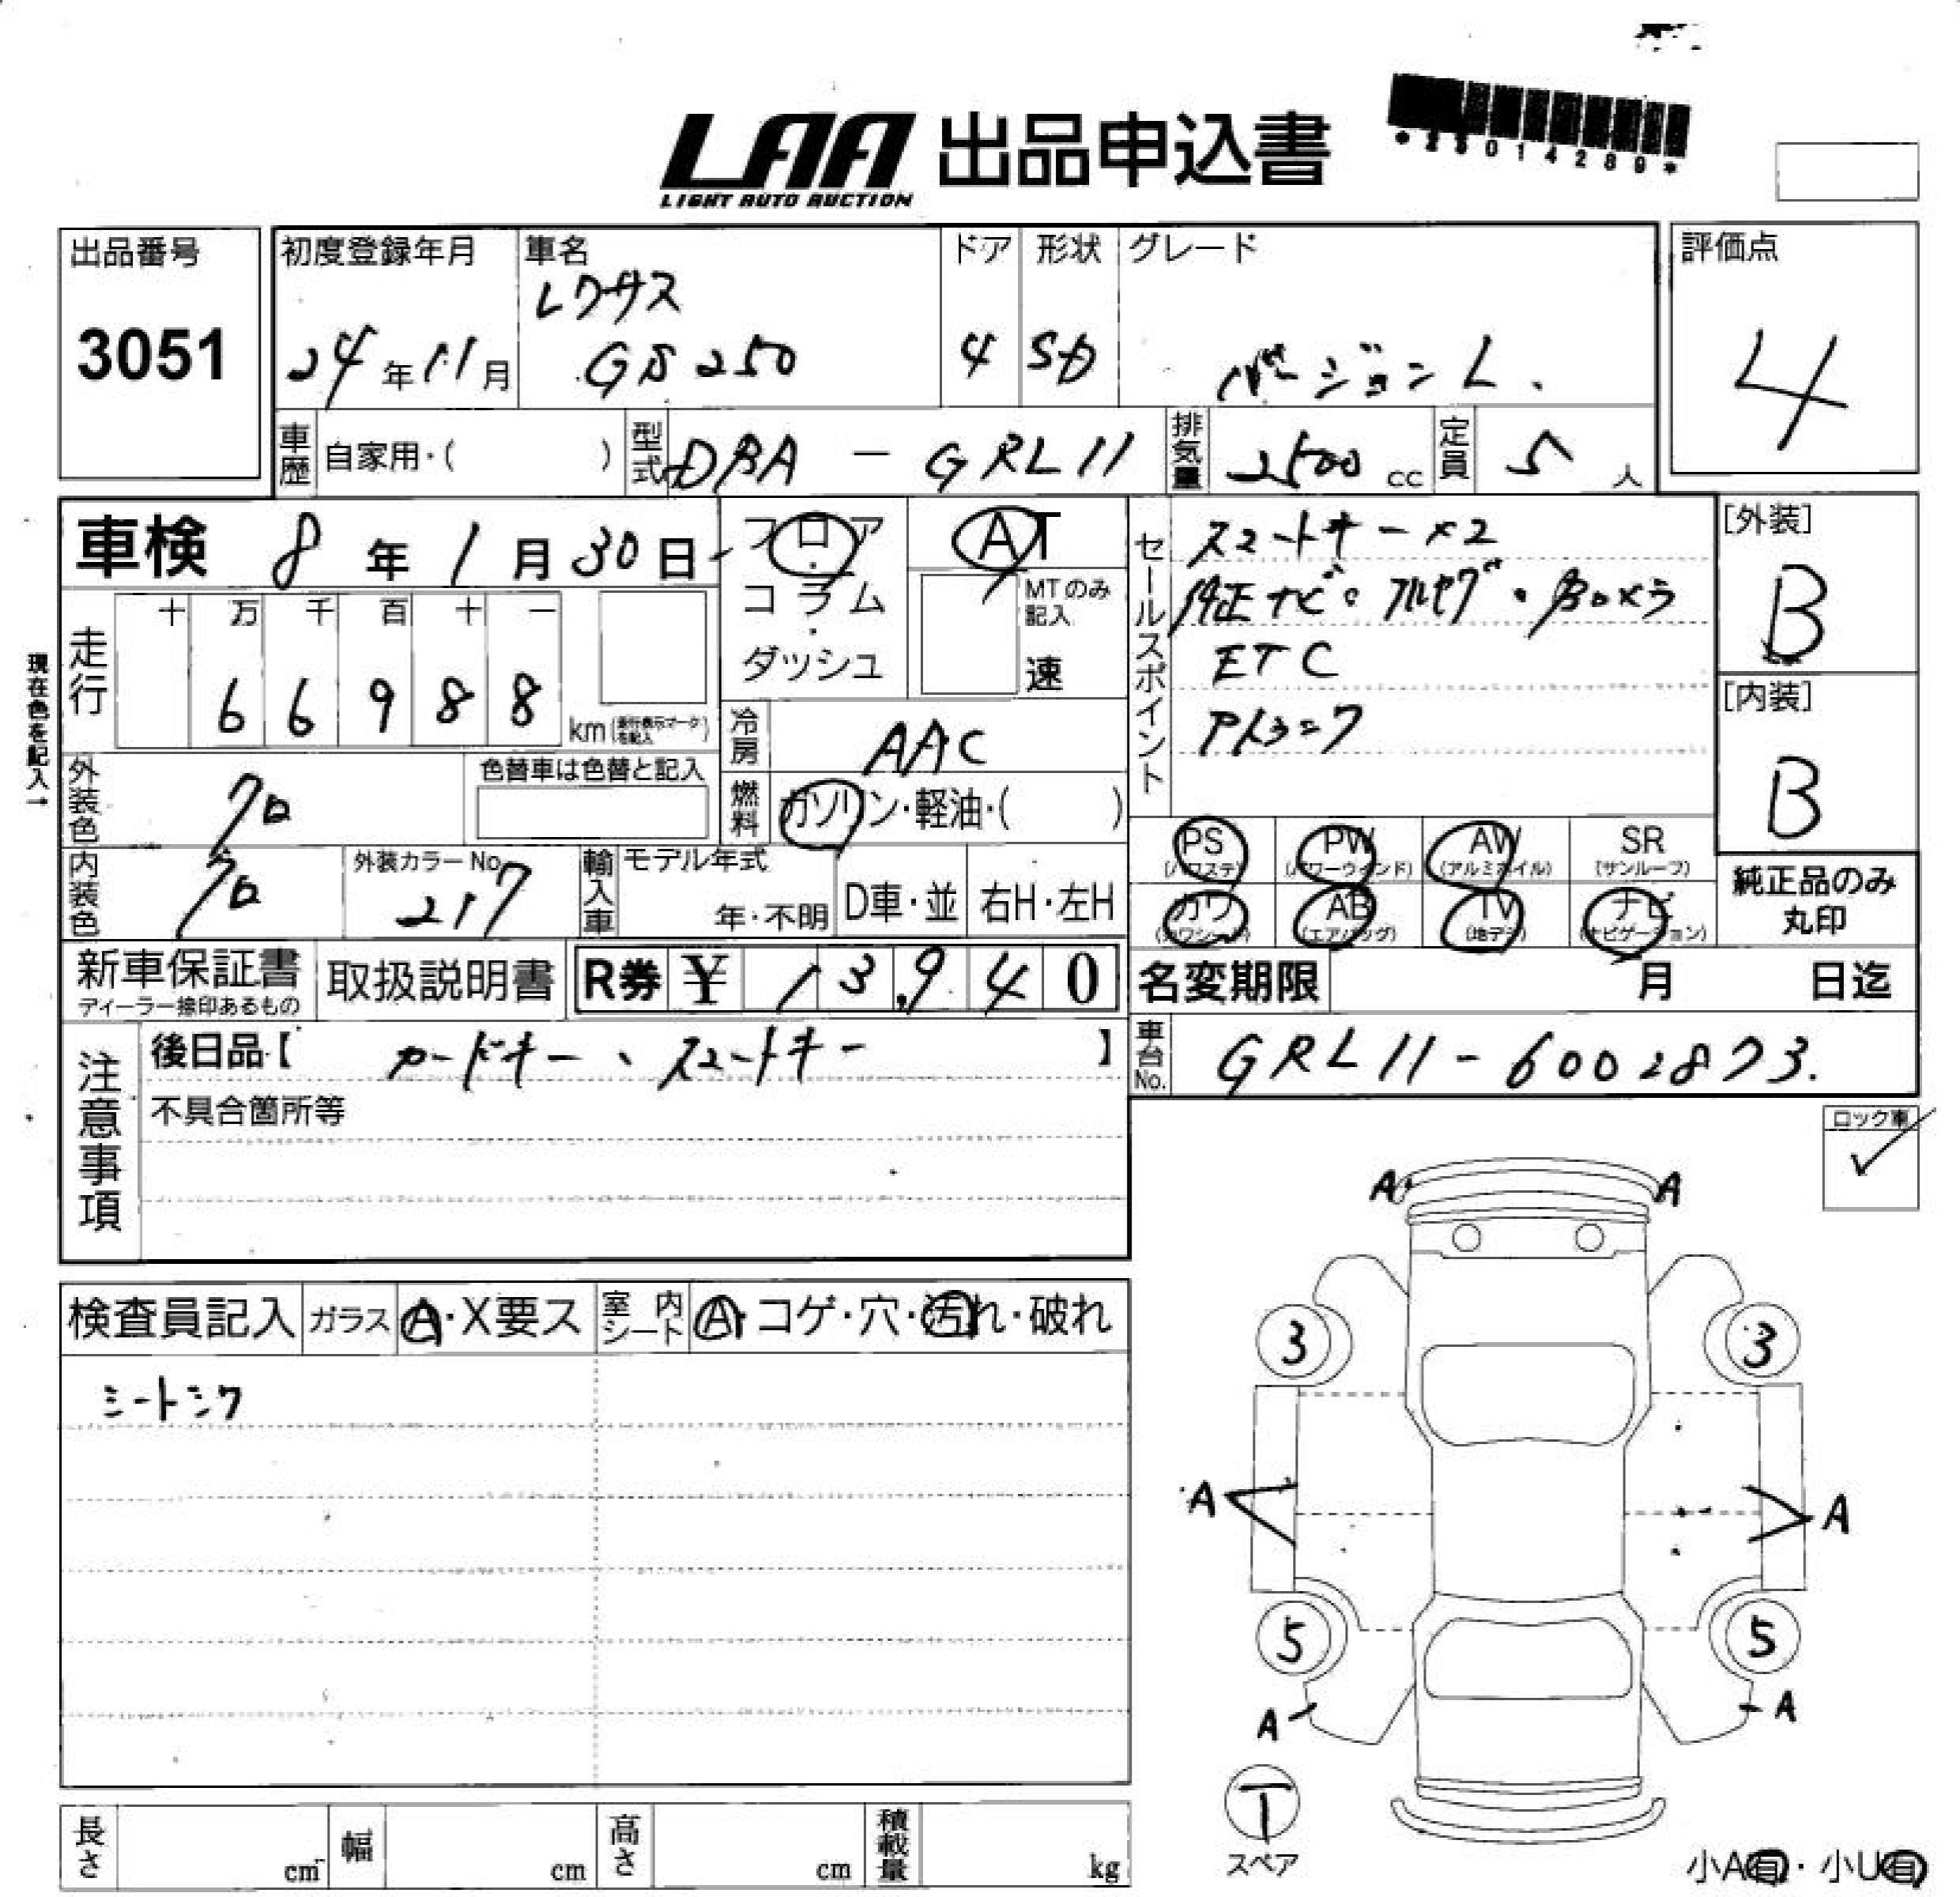 LAA 出品申込書
LIGHT AUTO AUCTION
*23014289*
出品番号
3051
初度登録年月
24年11月
車名
レクサス
GS250
ドア
4
形状
SD
グレード
バージョンL.
評価点
4
車歴 自家用・( )
型式 DBA - GRL11
排気量 2500 cc
定員 5 人
車検 8年1月30日
フロア・コラム・ダッシュ
AT
MTのみ記入
速
セールスポイント
スマートキー×2
純正ナビ・フルセグ・Bカメラ
ETC
[外装]
B
[内装]
B
現在色を記入→
走行
十 万 千 百 十 一
6 6 9 8 8
km(走行表示マークを記入)
冷房 AAC
外装色 クロ
色替車は色替と記入
燃料 ガソリン・軽油・( )
内装色 クロ
外装カラーNo. 217
輸入車
モデル年式
年・不明
D車・並
右H・左H
PS (パワステ)
PW (パワーウィンド)
AW (アルミホイル)
SR (サンルーフ)
カワ (カワシート)
AB (エアバッグ)
TV (地デジ)
ナビ (ナビゲーション)
純正品のみ
丸印
新車保証書
ディーラー捺印あるもの
取扱説明書
R券 ¥ 13,940
名変期限 月 日迄
車台No. GRL11-6002873.
注意事項
後日品【 カードキー、スマートキー 】
不具合箇所等
ロック車
✓
検査員記入
ガラス A・X要ス
室内シート A・コゲ・穴・汚れ・破れ
シートシワ
A A
3 3
A A
5 5
A A
T
スペア
小A有・小U有
長さ cm
幅 cm
高さ cm
積載量 kg